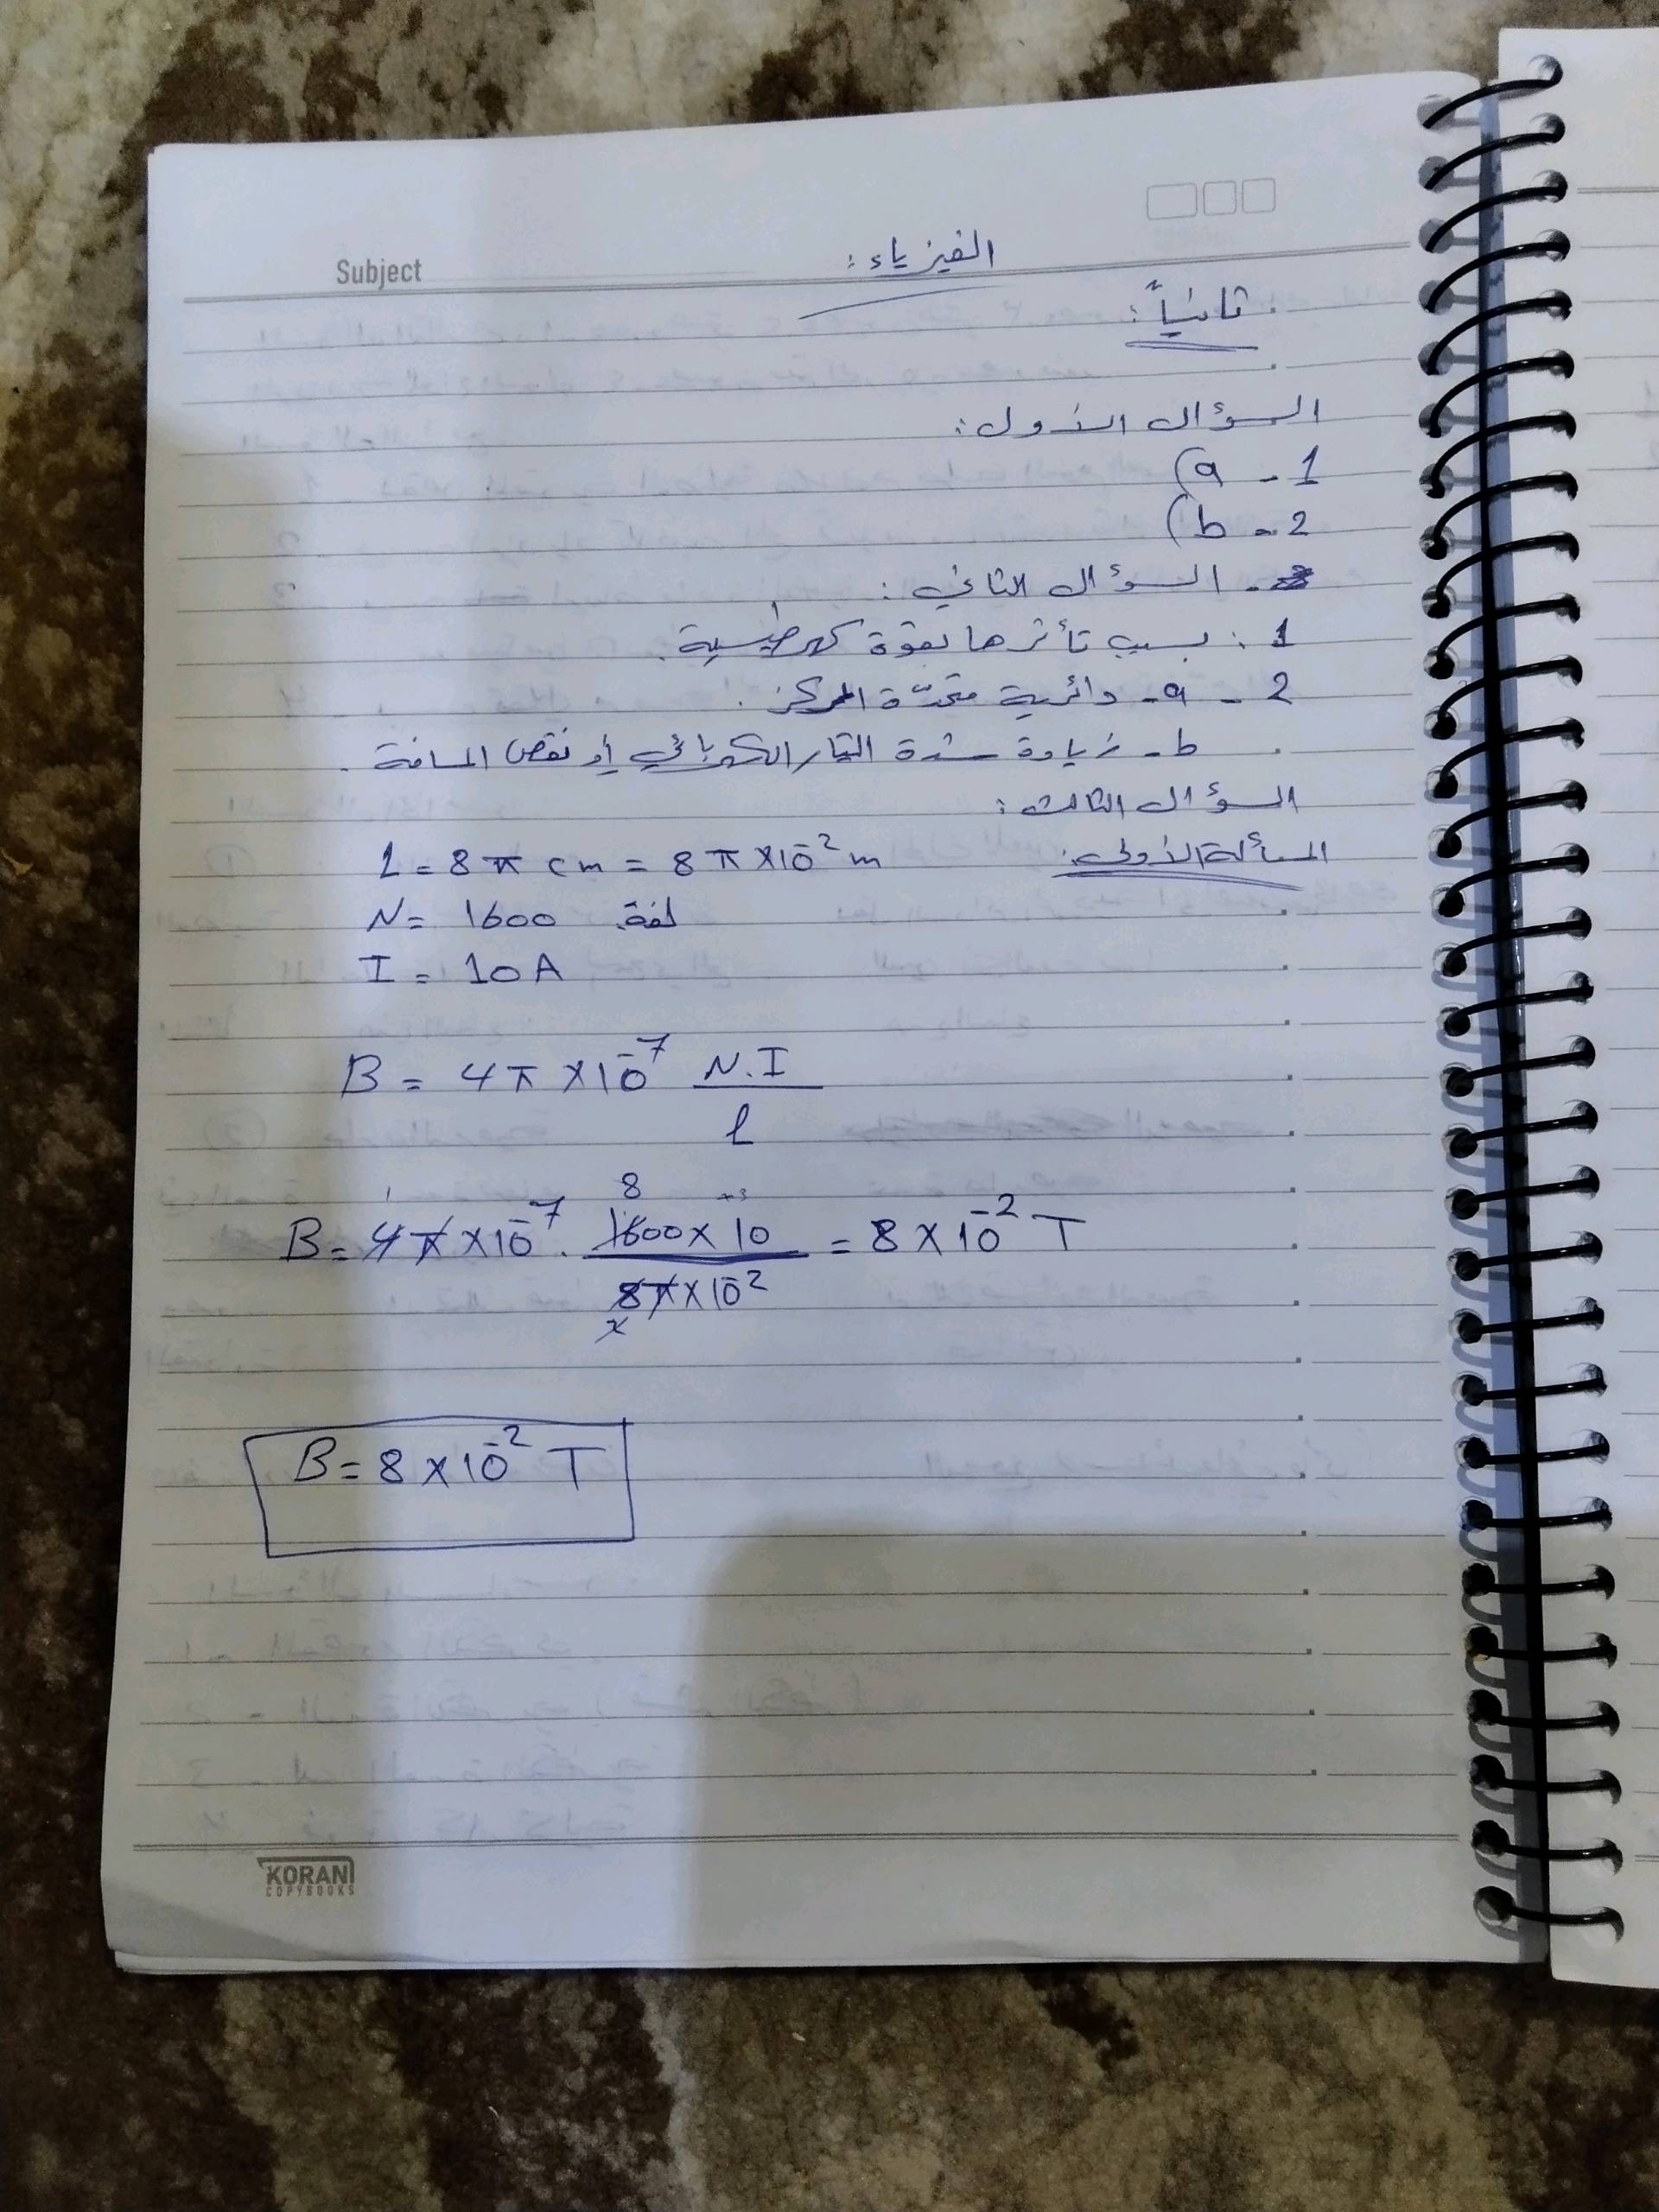 Subject
الفيزياء:
ثانياً:
السؤال الأول:
1 - a)
2 - b)
السؤال الثاني:
1: بسبب تأثرها بقوة كهرطيسية.
2 - a - دائرية متحدّة المركز.
b - زيادة شدة التيار الكهربائي أو نقص المسافة.
السؤال الثالث:
المسألة الأولى:
L = 8π cm = 8π × 10⁻² m
N = 1600 لفة
I = 10 A
B = 4π × 10⁻⁷ N.I / l
B = 4π × 10⁻⁷ . 1600 × 10 / 8π × 10⁻² = 8 × 10⁻² T
B = 8 × 10⁻² T
KORANI
COPYBOOKS